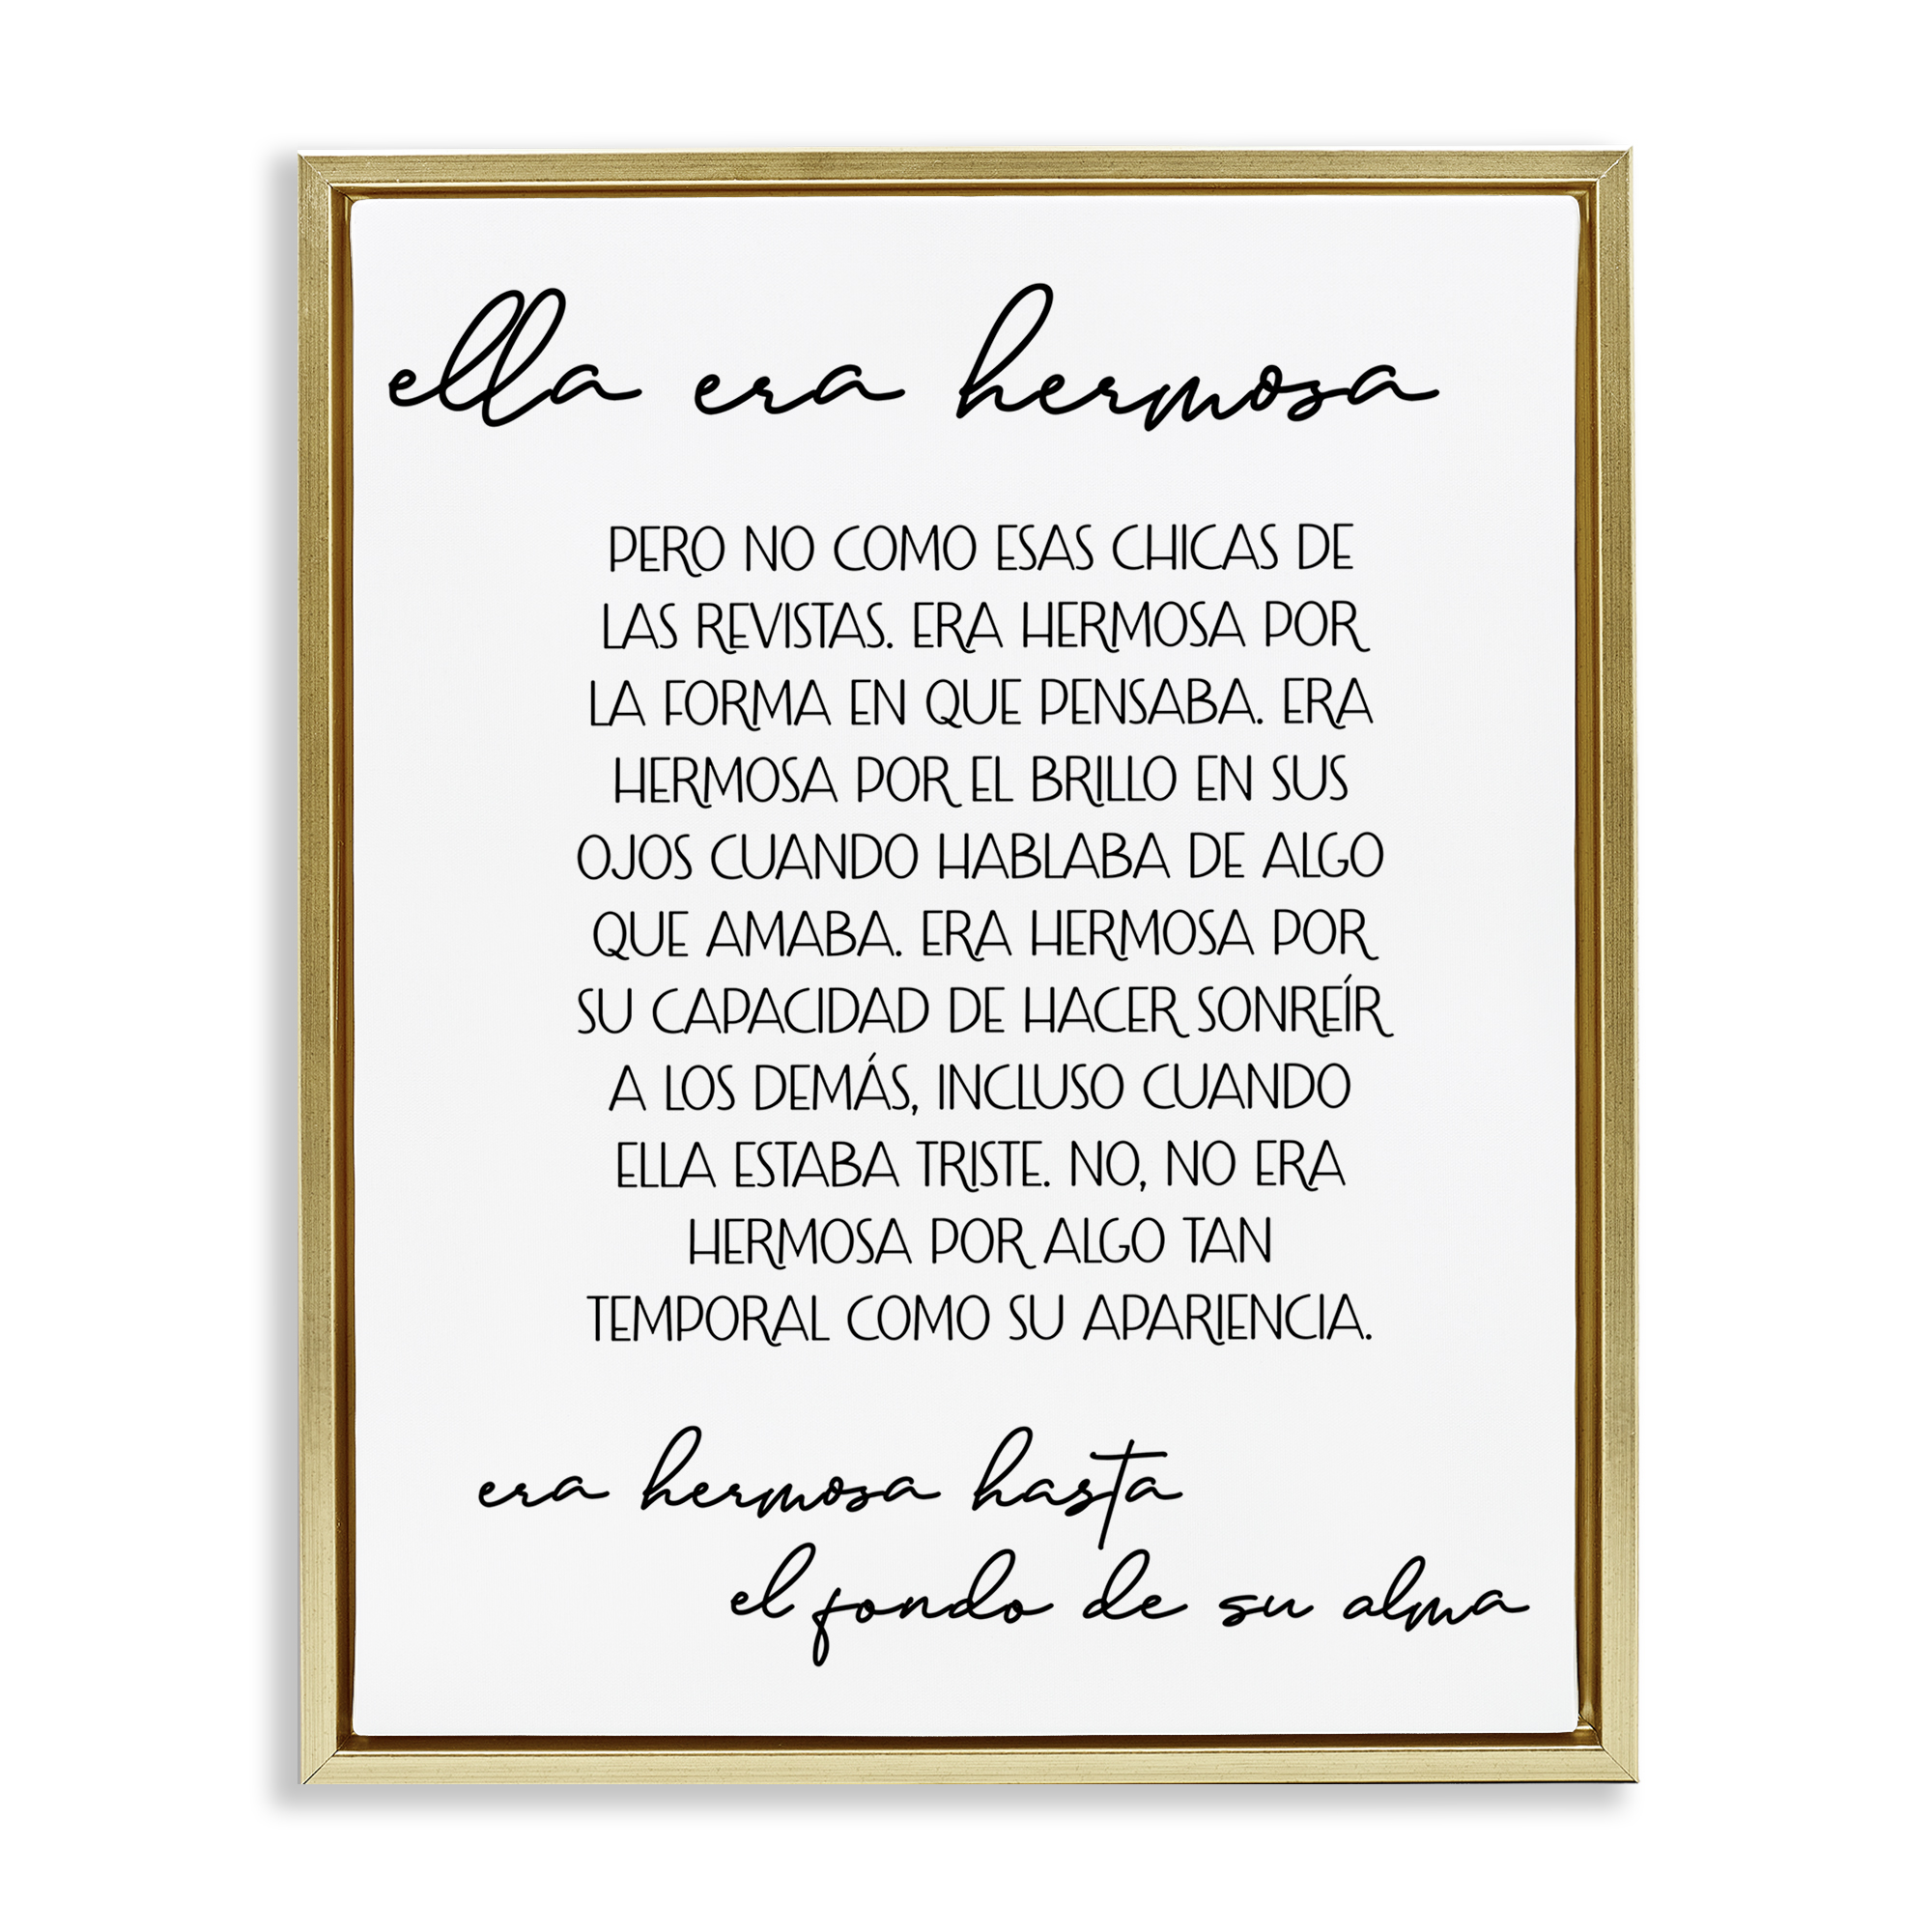 ella era hermosa
PERO NO COMO ESAS CHICAS DE
LAS REVISTAS. ERA HERMOSA POR
LA FORMA EN QUE PENSABA. ERA
HERMOSA POR EL BRILLO EN SUS
OJOS CUANDO HABLABA DE ALGO
QUE AMABA. ERA HERMOSA POR
SU CAPACIDAD DE HACER SONREÍR
A LOS DEMÁS, INCLUSO CUANDO
ELLA ESTABA TRISTE. NO, NO ERA
HERMOSA POR ALGO TAN
TEMPORAL COMO SU APARIENCIA.
era hermosa hasta
el fondo de su alma